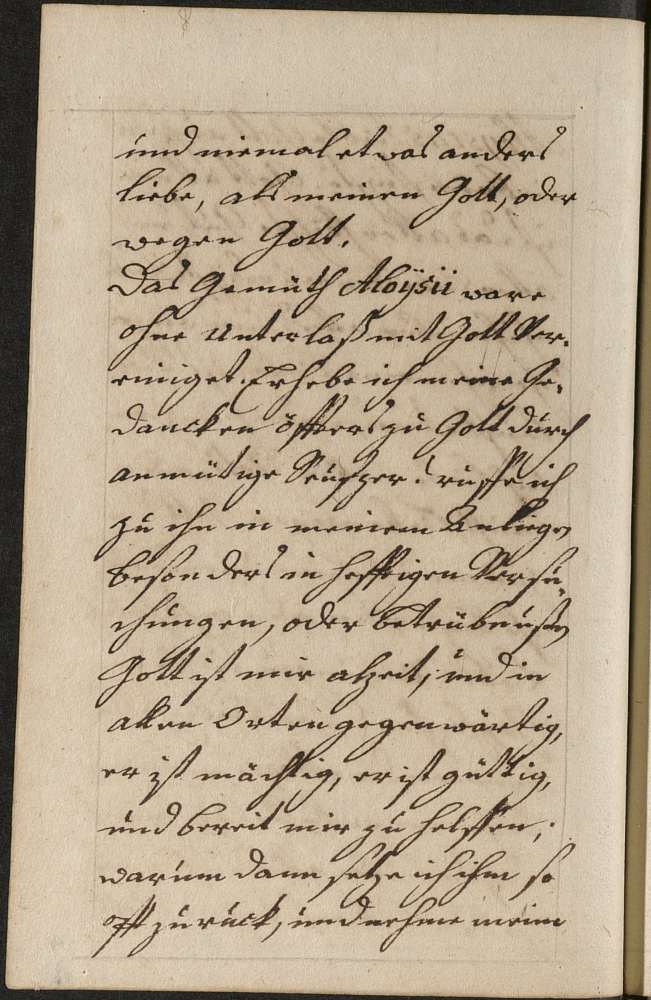 und niemal etwas anders
liebe, als meinen Gott, oder
wegen Gott.
Das Gemüth Aloÿsii ware
ohne Unterlaß mit Gott Ver-
einiget. Erhebe ich meine Ge-
dancken öffters zu Gott durch
anmütige Seufzer? ruffe ich
zu ihm in meinem Anliegen
besonders in hefftigen Versu-
chungen, oder betrübnußen
Gott ist mir alzeit, und in
allen Orten gegenwärtig,
er ist mächtig, er ist güttig,
und bereit mir zu helffen;
warum dann setze ich ihm so
offt zuruck, und nehme meine